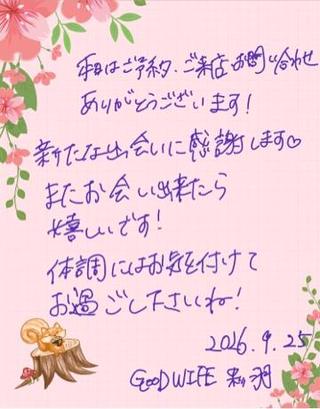 本日はご予約、ご来店、お問い合わせ
ありがとうございます!
新たな出会いに感謝します♡
またお会い出来たら
嬉しいです!
体調にはお気を付けて
お過ごし下さいね!
2026.9.25
GOODWIFE